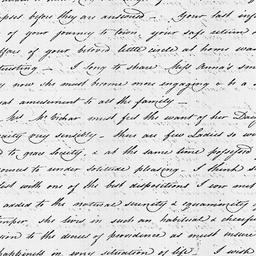 before they are answered. Your last inf
of your journey to town, your safe return
affairs of your beloved little circle at home wa
I long to share Miss Anna's so
now she must become more engaging & be a
amusement to all the family —
Mrs. must feel the want of her Da
very sensibly — there are few Ladies so w
to grace society, & at the same time possessed
to render solitude pleasing. I think s
blest with one of the best dispositions I ever met
added to the natural serenity & equanimity
temper, she lives in such an habitual & cheerful
to the decrees of providence as must insure
happiness in any situation of life. I wish